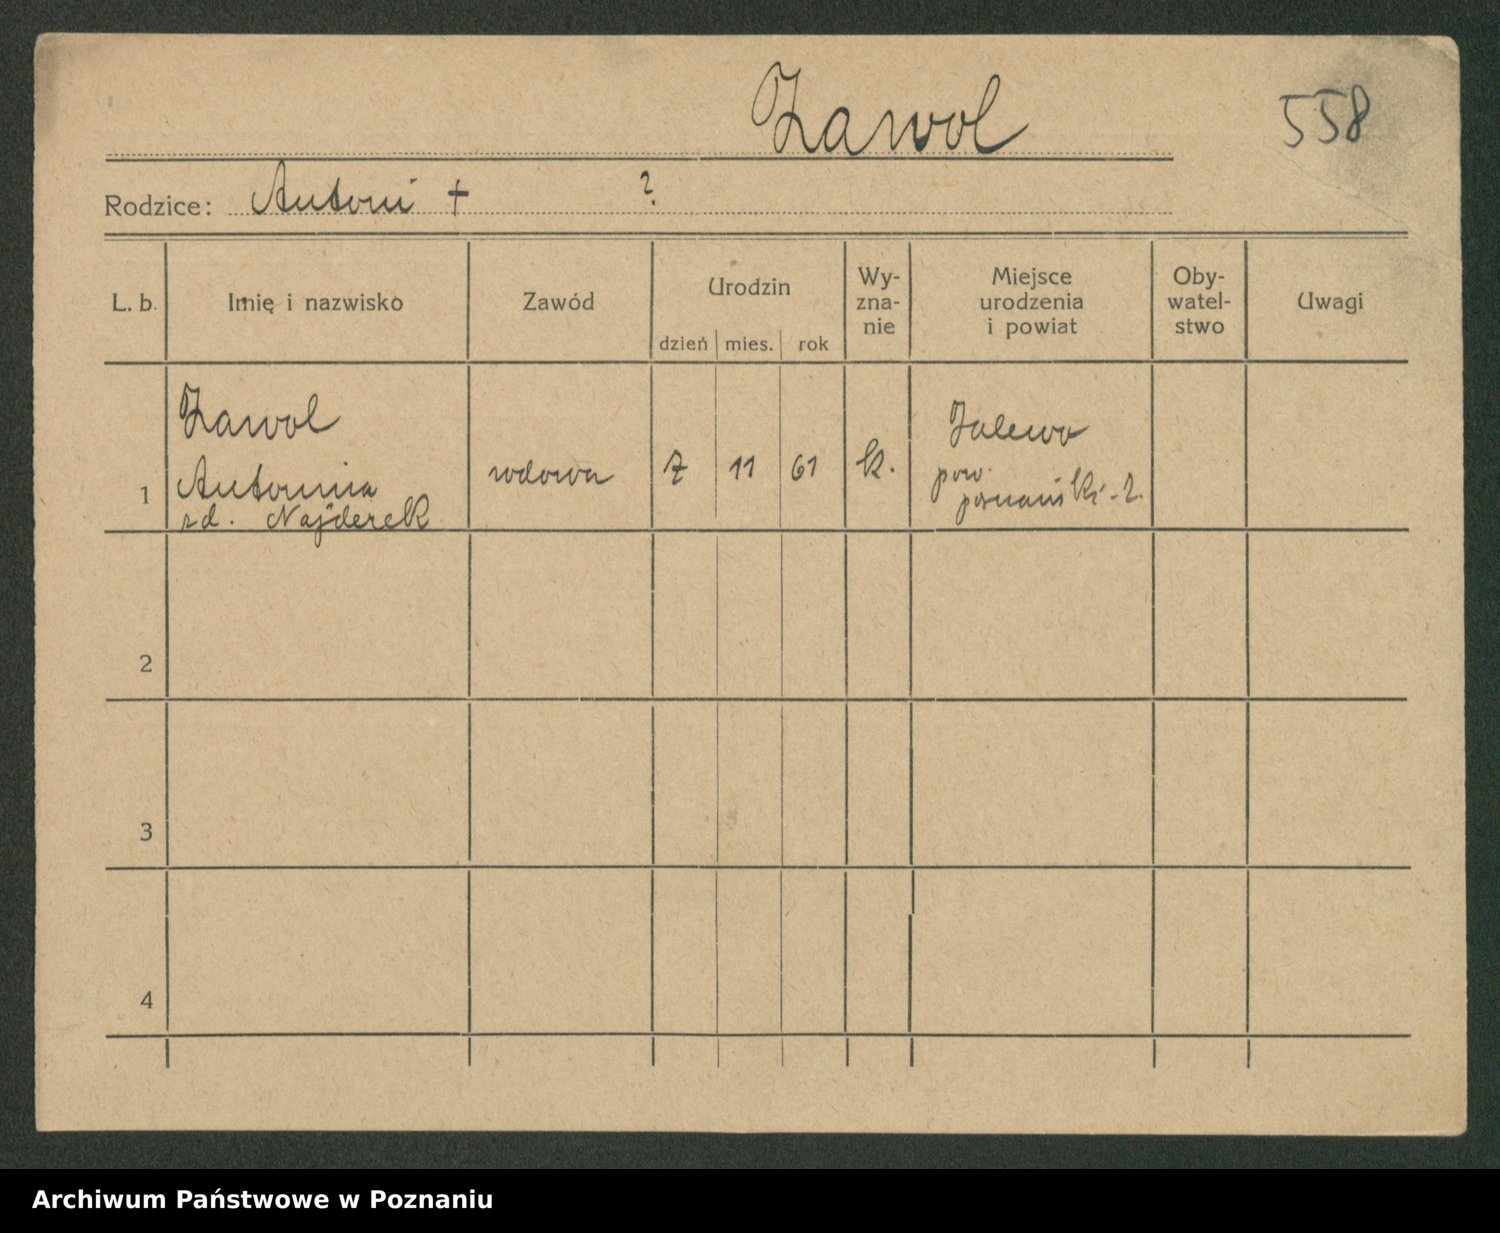 Zawol
558
Rodzice: Antoni + ?
L. b. Imię i nazwisko Zawód Urodzin dzień mies. rok Wy-zna-nie Miejsce urodzenia i powiat Oby-watel-stwo Uwagi
Zawol
Antonina
zd. Najderek
1 wdowa 7 11 61 k.
Zalewo
pow.
poznański - Z.
2
3
4
Archiwum Państwowe w Poznaniu